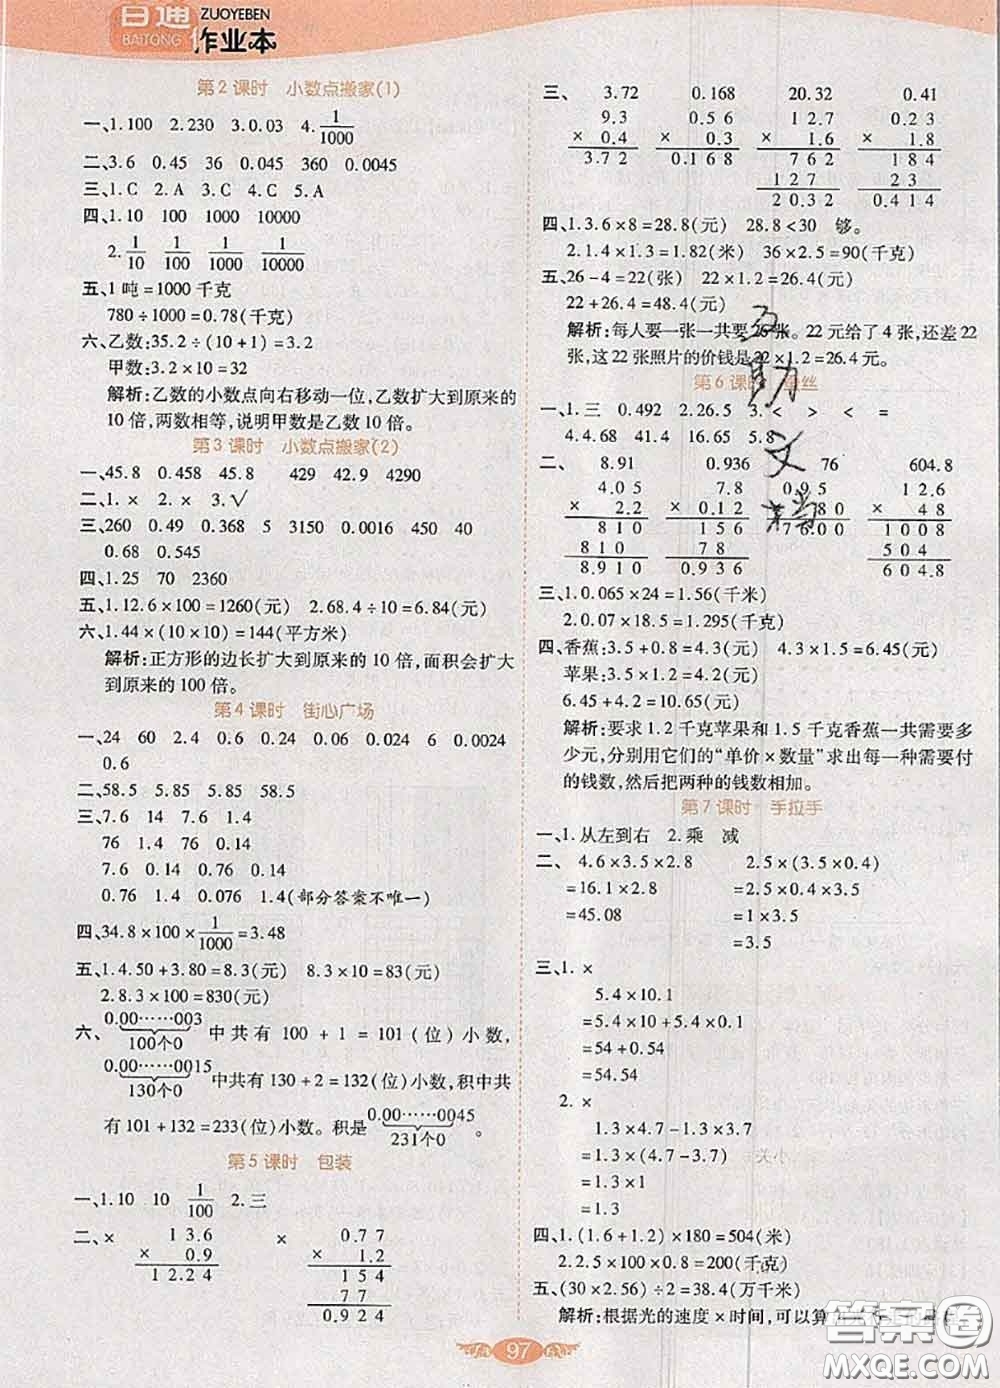 百通
BAITONG
ZUOYEBEN
作业本
第2课时 小数点搬家(1)
一、1.100 2.230 3.0.03 4.1/1000
二、3.6 0.45 36 0.045 360 0.0045
三、1.C 2.A 3.C 4.C 5.A
四、1.10 100 1000 10000
2.1/10 1/100 1/1000 1/10000
五、1吨=1000千克
780÷1000=0.78(千克)
六、乙数:35.2÷(10+1)=3.2
甲数:3.2×10=32
解析:乙数的小数点向右移动一位,乙数扩大到原来的
10倍,两数相等,说明甲数是乙数10倍。
第3课时 小数点搬家(2)
一、45.8 0.458 45.8 429 42.9 4290
二、1.× 2.× 3.√
三、260 0.49 0.368 5 3150 0.0016 450 40
0.68 0.545
四、1.25 70 2360
五、1.12.6×100=1260(元) 2.68.4÷10=6.84(元)
六、1.44×(10×10)=144(平方米)
解析:正方形的边长扩大到原来的10倍,面积会扩大
到原来的100倍。
第4课时 街心广场
一、24 60 2.4 0.6 0.24 0.06 0.024 6 0.0024
0.6
二、58.5 5.85 5.85 58.5
三、7.6 14 7.6 1.4
76 1.4 76 0.14
76 0.14 0.76 1.4
0.76 1.4 0.076 1.4(部分答案不唯一)
四、34.8×100×1/1000=3.48
五、1.4.50+3.80=8.3(元) 8.3×10=83(元)
2.8.3×100=830(元)
六、0.00……003(100个0)中共有100+1=101(位)小数,
0.00……0015(130个0)中共有130+2=132(位)小数,积中共
有101+132=233(位)小数。积是0.00……0045(231个0)。
第5课时 包装
一、1.10 10 1/100 2.三
二、× 13.6 × 0.77
× 0.9 × 1.2
12.24 154
77
0.924
三、 3.72 0.168 20.32 0.41
9.3 0.56 12.7 0.23
× 0.4 × 0.3 × 1.6 × 1.8
3.72 0.168 762 184
127 23
20.32 0.414
四、1.3.6×8=28.8(元) 28.8<30 够。
2.1.4×1.3=1.82(米) 36×2.5=90(千克)
五、26-4=22(张) 22×1.2=26.4(元)
22+26.4=48.4(元)
解析:每人要一张一共要26张。22元给了4张,还差22
张,这22张照片的价钱是22×1.2=26.4元。
第6课时 丝
一、1.三 0.492 2.26.5 3.< > < =
4.4.68 41.4 16.65 5.8
二、 8.91 0.936 76 604.8
4.05 7.8 0.95 12.6
× 2.2 × 0.12 80 × 48
810 156 76.00 1008
810 78 504
8.910 0.936 604.8
三、1.0.065×24=1.56(千米)
2.0.07×18.5=1.295(千克)
四、香蕉:3.5+0.8=4.3(元) 4.3×1.5=6.45(元)
苹果:3.5×1.2=4.2(元)
6.45+4.2=10.65(元)
解析:要求1.2千克苹果和1.5千克香蕉一共需要多
少元,分别用它们的“单价×数量”求出每一种需要付
的钱数,然后把两种的钱数相加。
第7课时 手拉手
一、1.从左到右 2.乘 减
二、 4.6×3.5×2.8 2.5×(3.5×0.4)
=16.1×2.8 =2.5×0.4×3.5
=45.08 =1×3.5
=3.5
三、1. ×
5.4×10.1
=5.4×10+5.4×0.1
=54+0.54
=54.54
2. ×
1.3×4.7-1.3×3.7
=1.3×(4.7-3.7)
=1.3×1
=1.3
四、1.(1.6+1.2)×180=504(米)
2.2.5×100×0.8=200(千克)
五、(30×2.56)÷2=38.4(万千米)
解析:根据光的速度×时间,可以算
互
助
文
档
答案圈
MXQE.COM
97